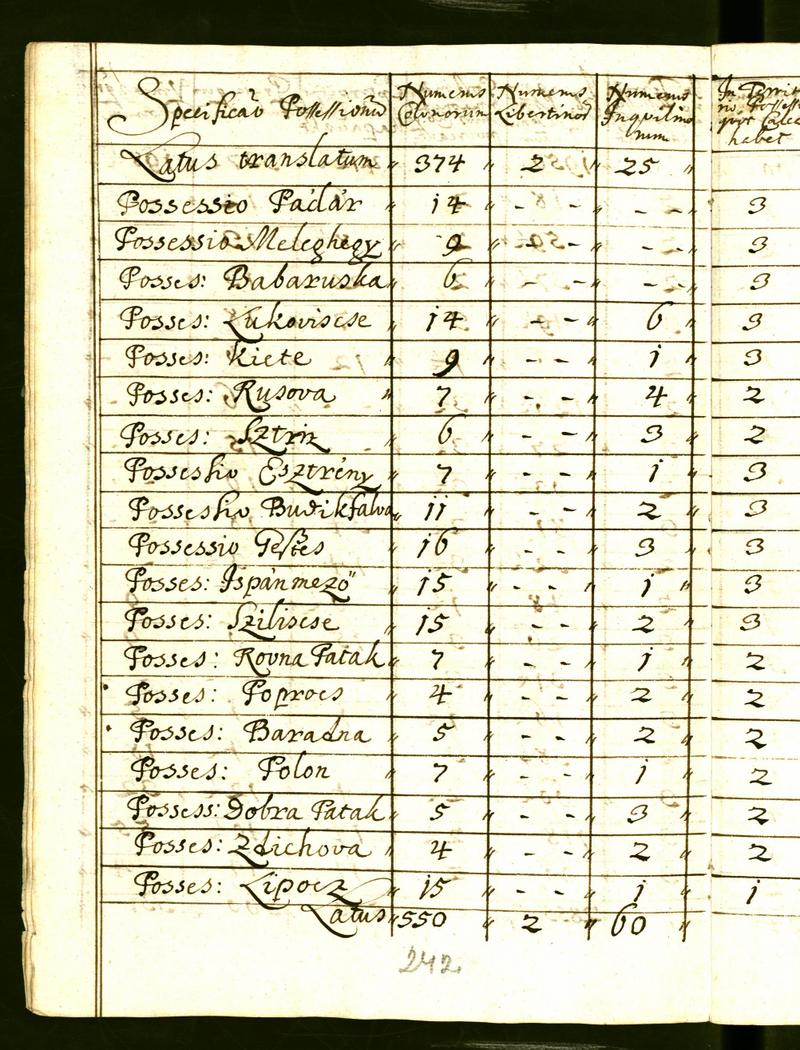 Specificaõ Possessionũ | Numerus Colonorum | Numerus Libertinor̃ | Numerus Inquilinorum | In Territ
Latus translatum 〃 374 〃 2 〃 25 〃
Possessio Padár 〃 14 〃 - - 〃 - - 〃 3
Possessio Meleghegy 〃 9 〃 - - 〃 - - 〃 3
Posses: Babaruska 〃 6 〃 - - 〃 - - 〃 3
Posses: Lukoviscse 〃 14 〃 - - 〃 6 〃 3
Posses: Kiete 〃 9 〃 - - 〃 1 〃 3
Posses: Rusova 〃 7 〃 - - 〃 4 〃 2
Posses: Sztriz 〃 6 〃 - - 〃 3 〃 2
Possessio Esztrény 〃 7 〃 - - 〃 1 〃 3
Possessio Budikfalva 〃 11 〃 - - 〃 2 〃 3
Possessio Gesztes 〃 16 〃 - - 〃 3 〃 3
Posses: Ispánmező 〃 15 〃 - - 〃 1 〃 3
Posses: Sziliscse 〃 15 〃 - - 〃 2 〃 3
Posses: Rovna Patak 〃 7 〃 - - 〃 1 〃 2
Posses: Poprocs 〃 4 〃 - - 〃 2 〃 2
Posses: Baradna 〃 5 〃 - - 〃 2 〃 2
Posses: Polon 〃 7 〃 - - 〃 1 〃 2
Possess: Dobra Patak 〃 5 〃 - - 〃 3 〃 2
Posses: Zdichova 〃 4 〃 - - 〃 2 〃 2
Posses: Lipocz 〃 15 〃 - - 〃 1 〃 1
Latus 〃 550 〃 2 〃 60 〃
242